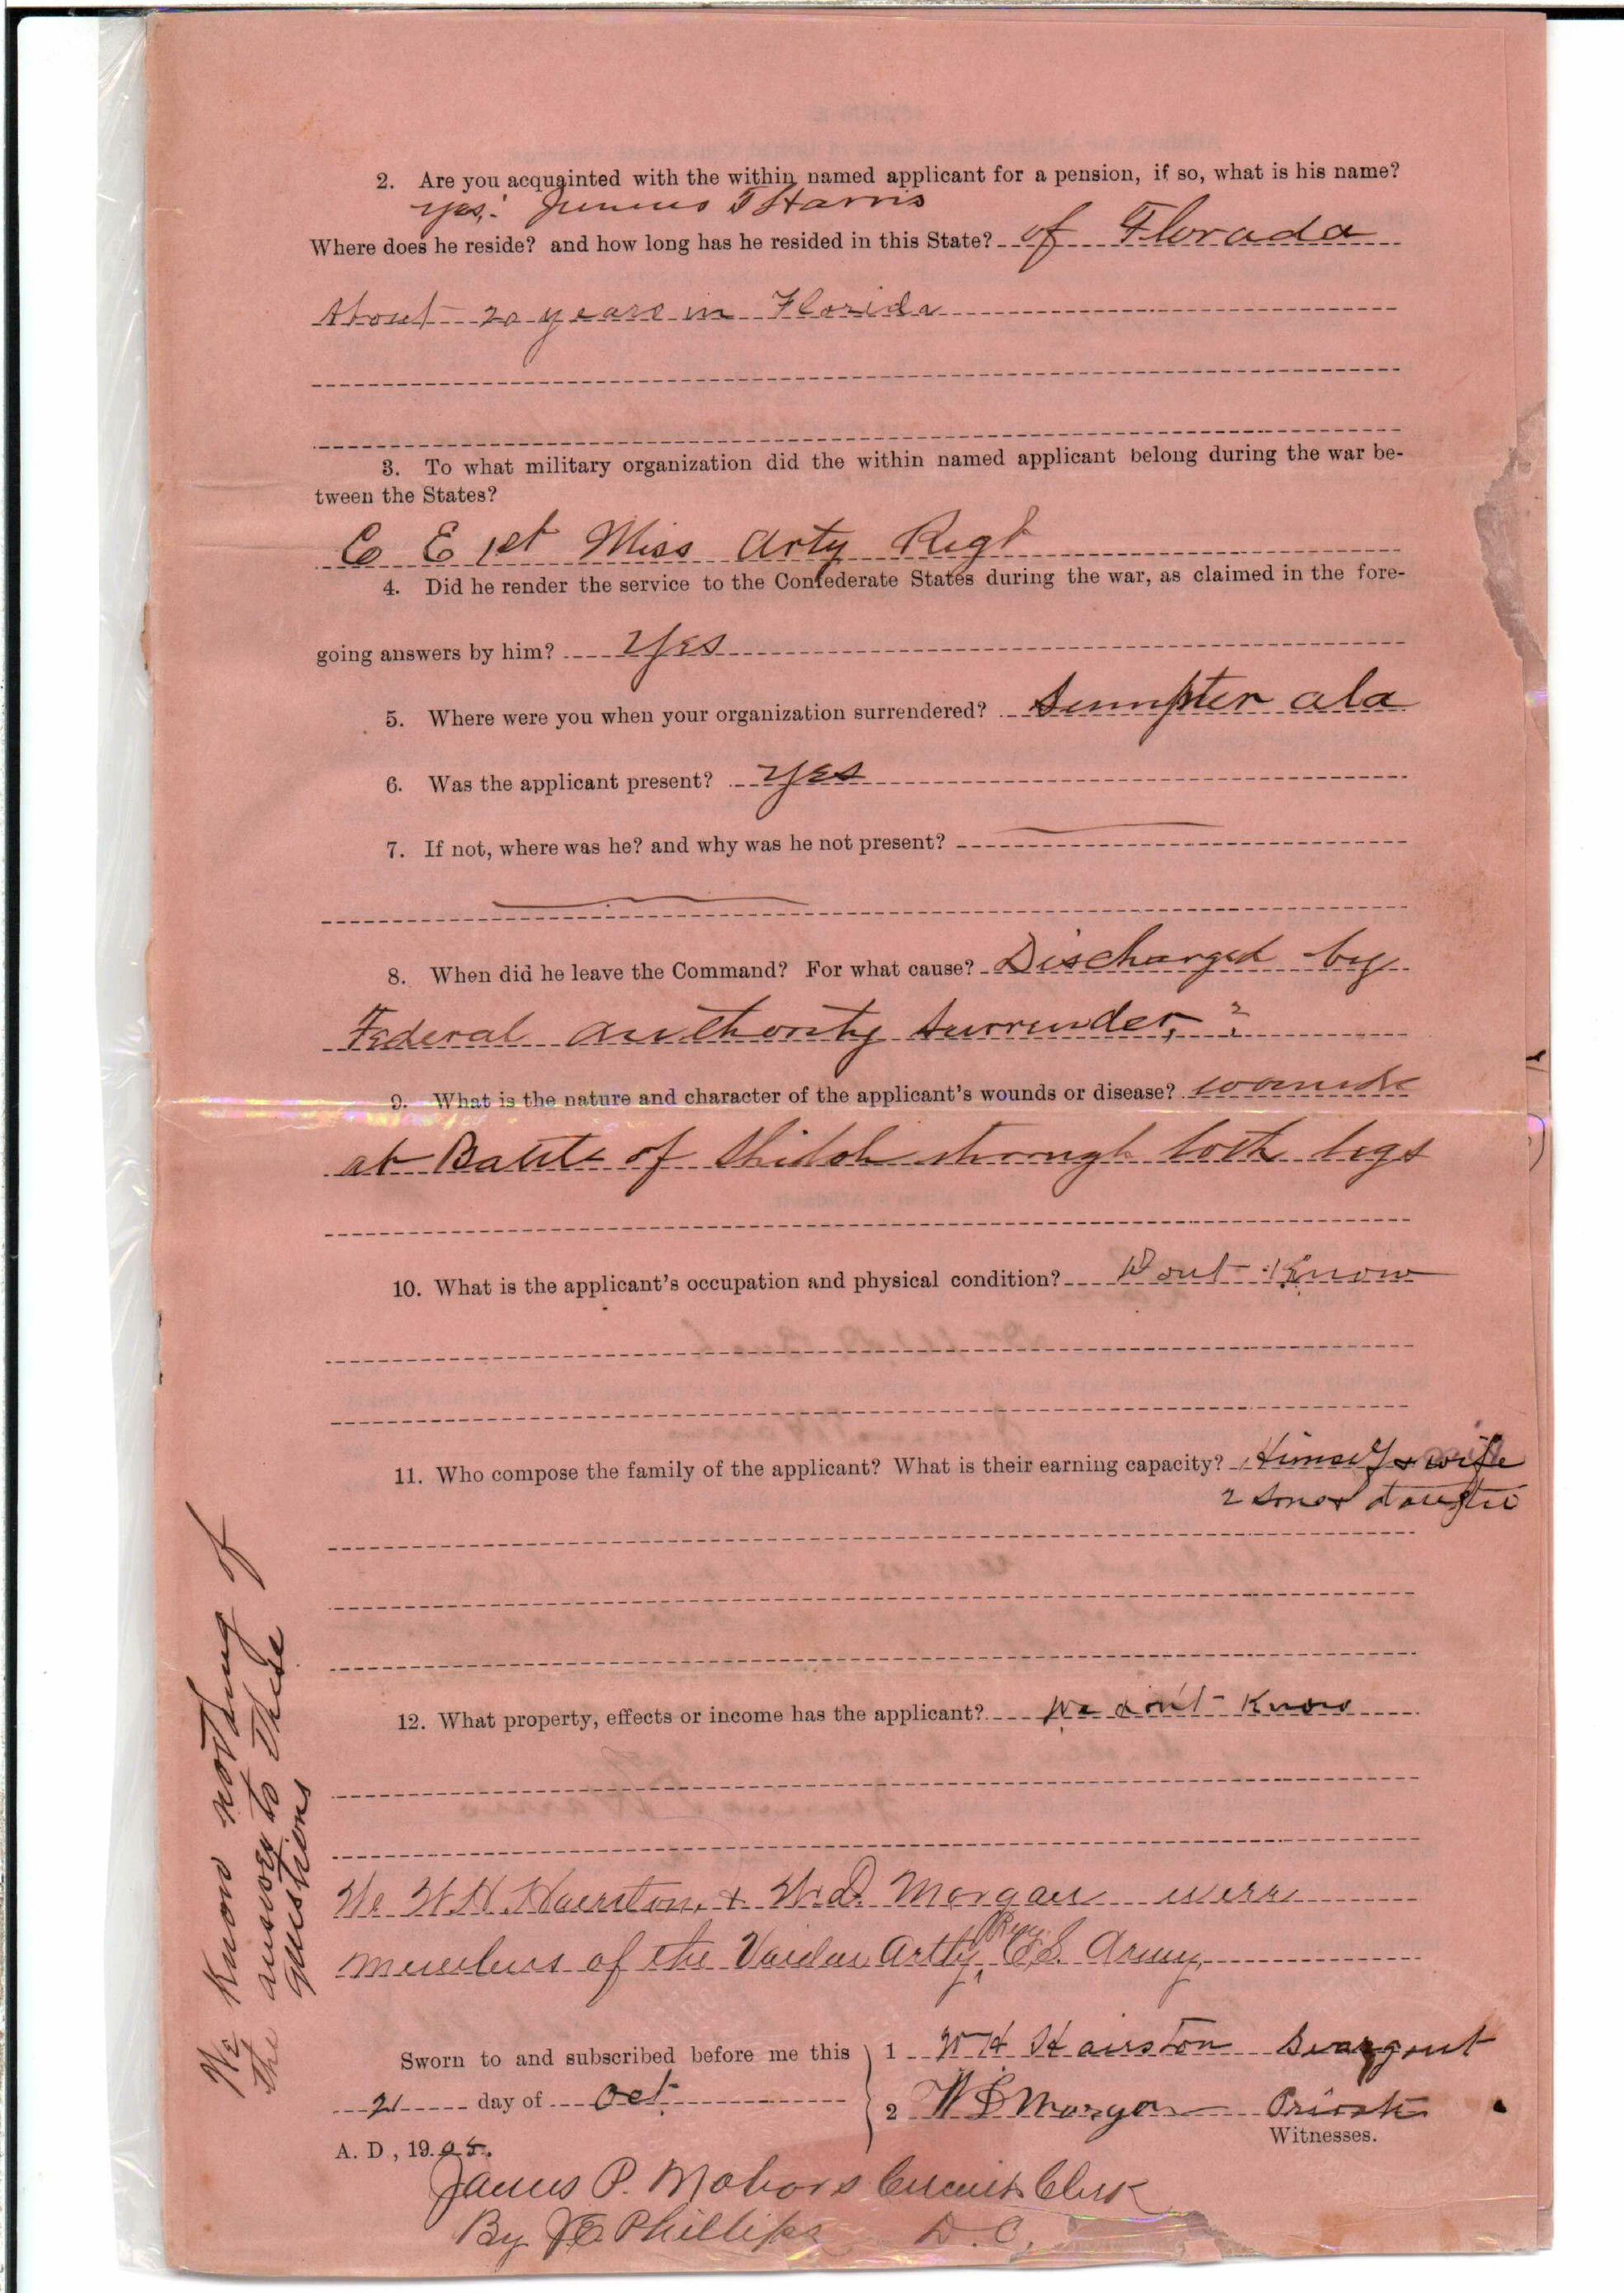 2. Are you acquainted with the within named applicant for a pension, if so, what is his name?
yes. Junius T Harris
Where does he reside? and how long has he resided in this State? of Florada
About 20 years in Florida
3. To what military organization did the within named applicant belong during the war be-
tween the States?
Co E 1st Miss Arty Regt
4. Did he render the service to the Confederate States during the war, as claimed in the fore-
going answers by him? Yes
5. Where were you when your organization surrendered? Sumpter ala
6. Was the applicant present? Yes
7. If not, where was he? and why was he not present?
8. When did he leave the Command? For what cause? Discharged by
Federal authority Surrender,
9. What is the nature and character of the applicant's wounds or disease? wounds
at Battle of Shiloh through both legs
10. What is the applicant's occupation and physical condition? Dont Know
11. Who compose the family of the applicant? What is their earning capacity? Himself & wife
2 sons
12. What property, effects or income has the applicant? We don't Know
We Know nothing of
the answers to these
questions
We W.H. Hairston & W.D. Morgan were
members of the Vaiden Artty, Reg C.S. Army
Sworn to and subscribed before me this
21 day of Oct
A. D, 1905.
1 W H Hairston Seargent
2 W D Morgan Private
Witnesses.
James P. Circuit Clerk
By Phillips D.C.